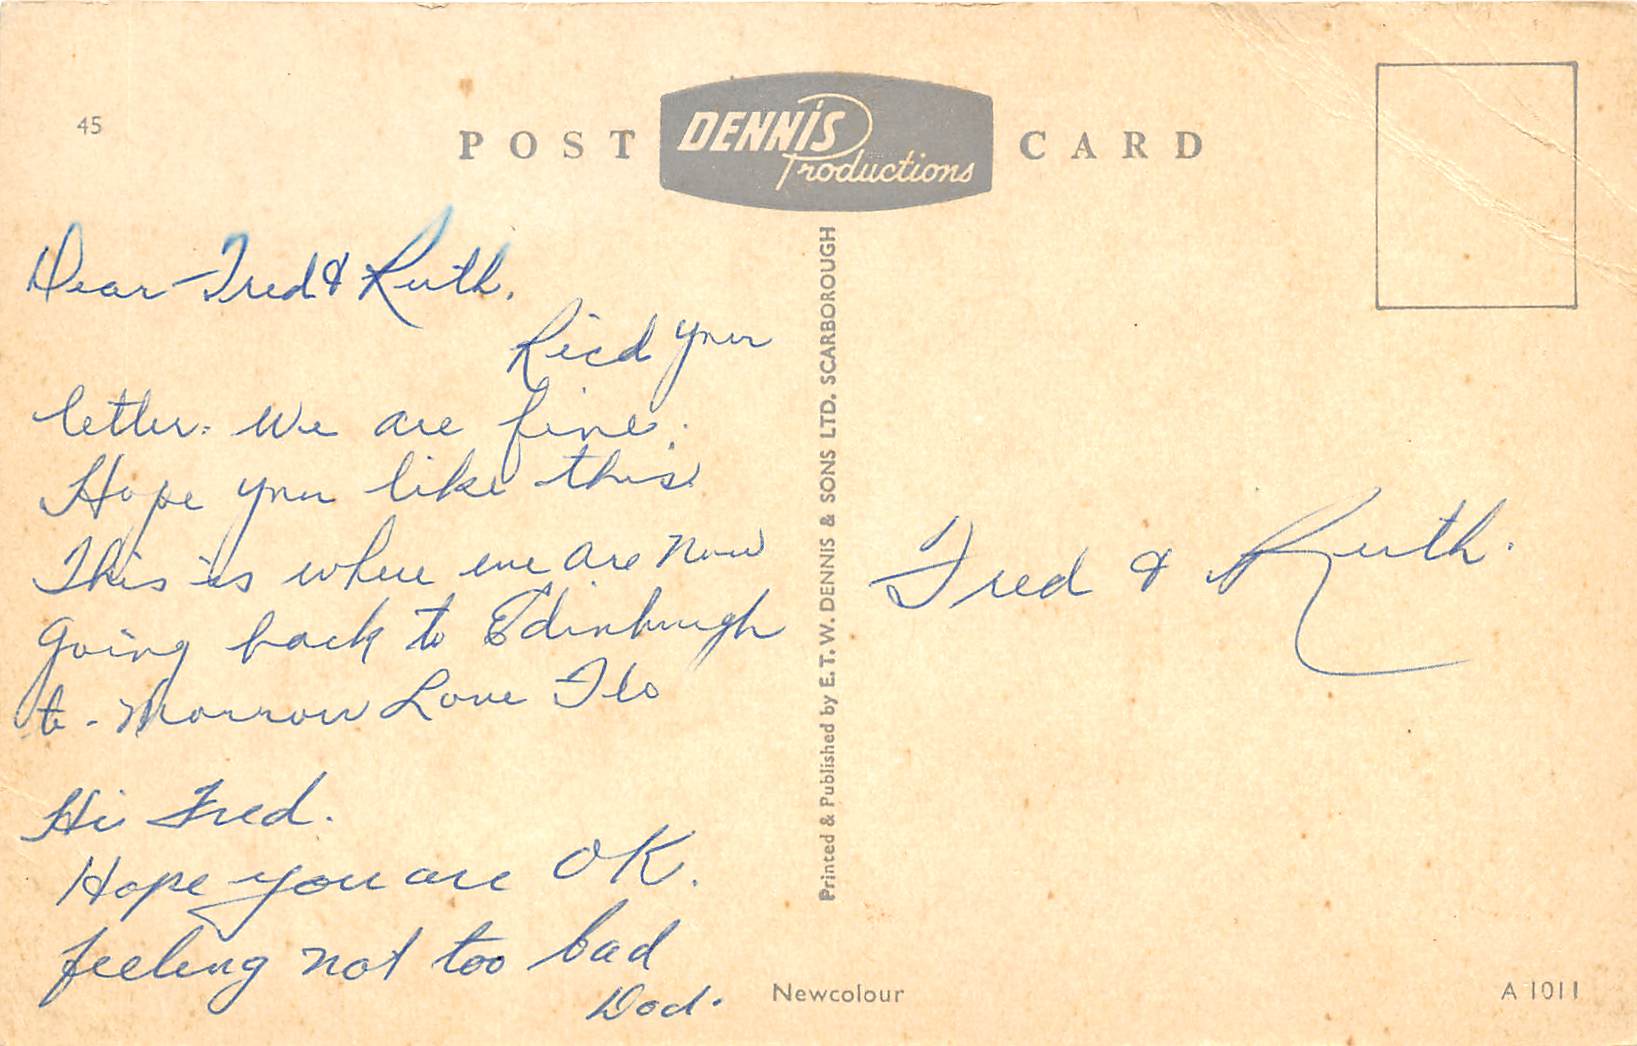 45
POST CARD
DENNIS
Productions
Dear Fred & Ruth.
Recd your
letter. We are fine.
Hope you like this.
This is where we are now
going back to Edinburgh
to-Morrow Love Flo
Hi Fred.
Hope you are OK.
feeling not too bad
Dod.
Printed & Published by E. T. W. DENNIS & SONS LTD. SCARBOROUGH
Fred & Ruth.
Newcolour
A 1011